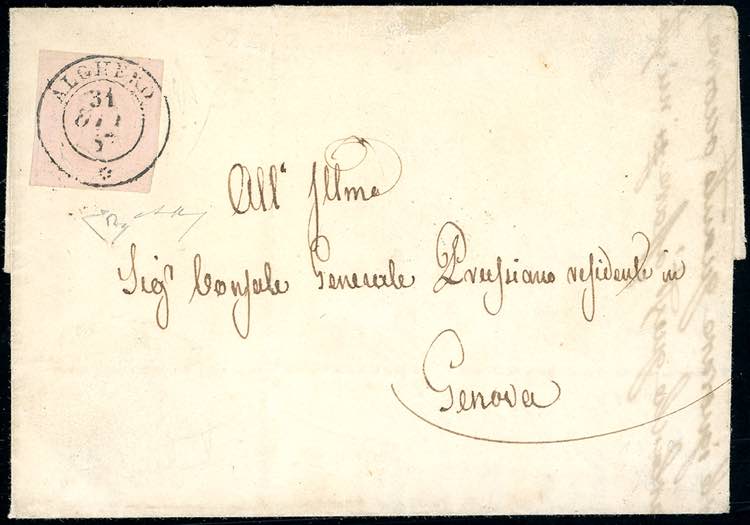 ALGHERO
31
OTT
5
All' Illmo
Sigr Console Generale Prussiano residente in
Genova